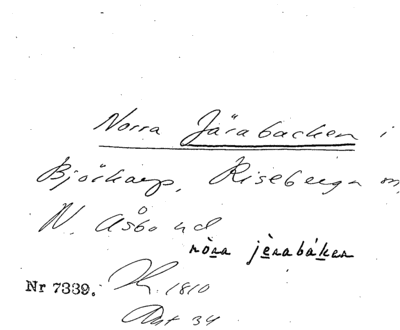 Norra Järabacken i
Björkarp, Riseberga sn,
N. Åsbo hd
nòra jèrabáken
Nr 7339. K. 1810
Ant 34